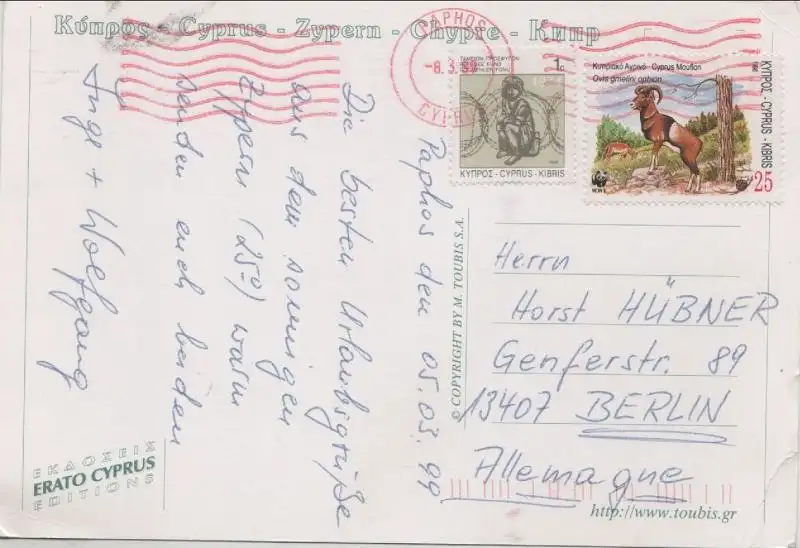 Κύπρος - Cyprus - Zypern - Chypre - Кипр
PAPHOS
-8. 3. 9
CYPR
1c
ΚΥΠΡΟΣ - CYPRUS - KIBRIS
Κυπριακό Αγρινό - Cyprus Mouflon
Ovis gmelini ophion
ΚΥΠΡΟΣ - CYPRUS - KIBRIS
WWF
25
Paphos den 05.03.99
Die besten Urlaubsgrüße
aus dem sonnigen
Zypern (25°) warm
senden euch beiden
Inge + Wolfgang
© COPYRIGHT BY M. TOUBIS S.A.
Herrn
Horst HÜBNER
Genferstr. 89
13407 BERLIN
Allemagne
ΕΚΔΟΣΕΙΣ
ERATO CYPRUS
EDITIONS
http://www.toubis.gr